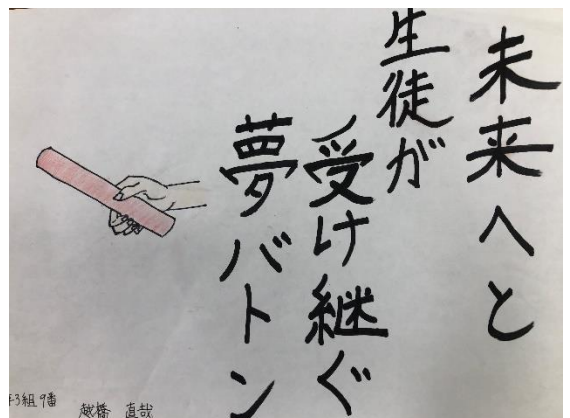 未来へと
生徒が
受け継ぐ
夢バトン
年3組9番
越橋 直哉